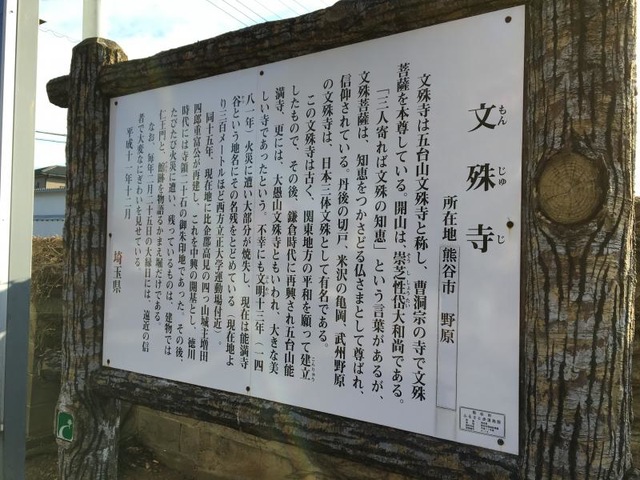 文殊寺
もんじゅじ
所在地 熊谷市 野原
文殊寺は五台山文殊寺と称し、曹洞宗の寺で文殊
菩薩を本尊としている。開山は、崇芝性岱大和尚である。
「三人寄れば文殊の知恵」という言葉があるが、
文殊菩薩は、知恵をつかさどる仏さまとして尊ばれ、
信仰されている。丹後の切戸、米沢の亀岡、武州野原
の文殊寺は、日本三体文殊として有名である。
この文殊寺は古く、関東地方の平和を願って建立
したもので、その後、鎌倉時代に再興され五台山能
満寺、更には、大愚山文殊寺ともいわれ、大きな美
しい寺であったという。不幸にも文明十三年(一四
八一年)火災に遭い大部分が焼失し、現在は能満寺
谷という地名にその名残をとどめている(現在地よ
り三百メートルほど西方立正大学運動場付近)。
同十五年、現在地に比企郡高見の四つ山城主増田
四郎重富公が再建し、これを中興の開基とし、徳川
時代には寺領二十石の御朱印地であった。その後、
たびたび火災に遭い、残っているものは、建物では
仁王門と、館跡を物語るかまえ堀だけである。
なお、毎年二月二十五日の大縁日には、遠近の信
者で大変なにぎわいを見せている。
平成十一年十二月
埼玉県